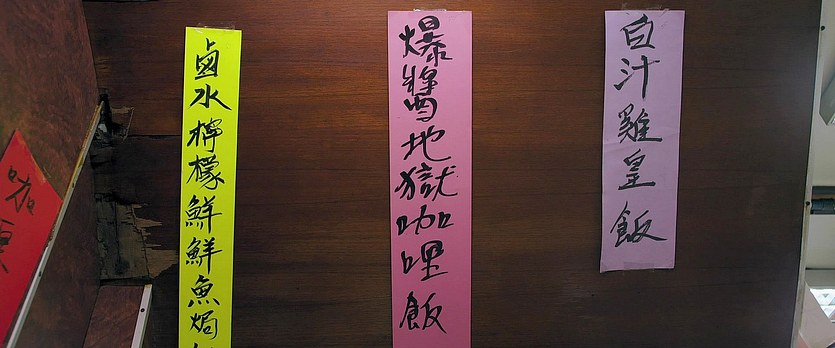 白汁雞皇飯
爆醬地獄咖哩飯
鹵水檸檬鮮鮮魚焗
咖